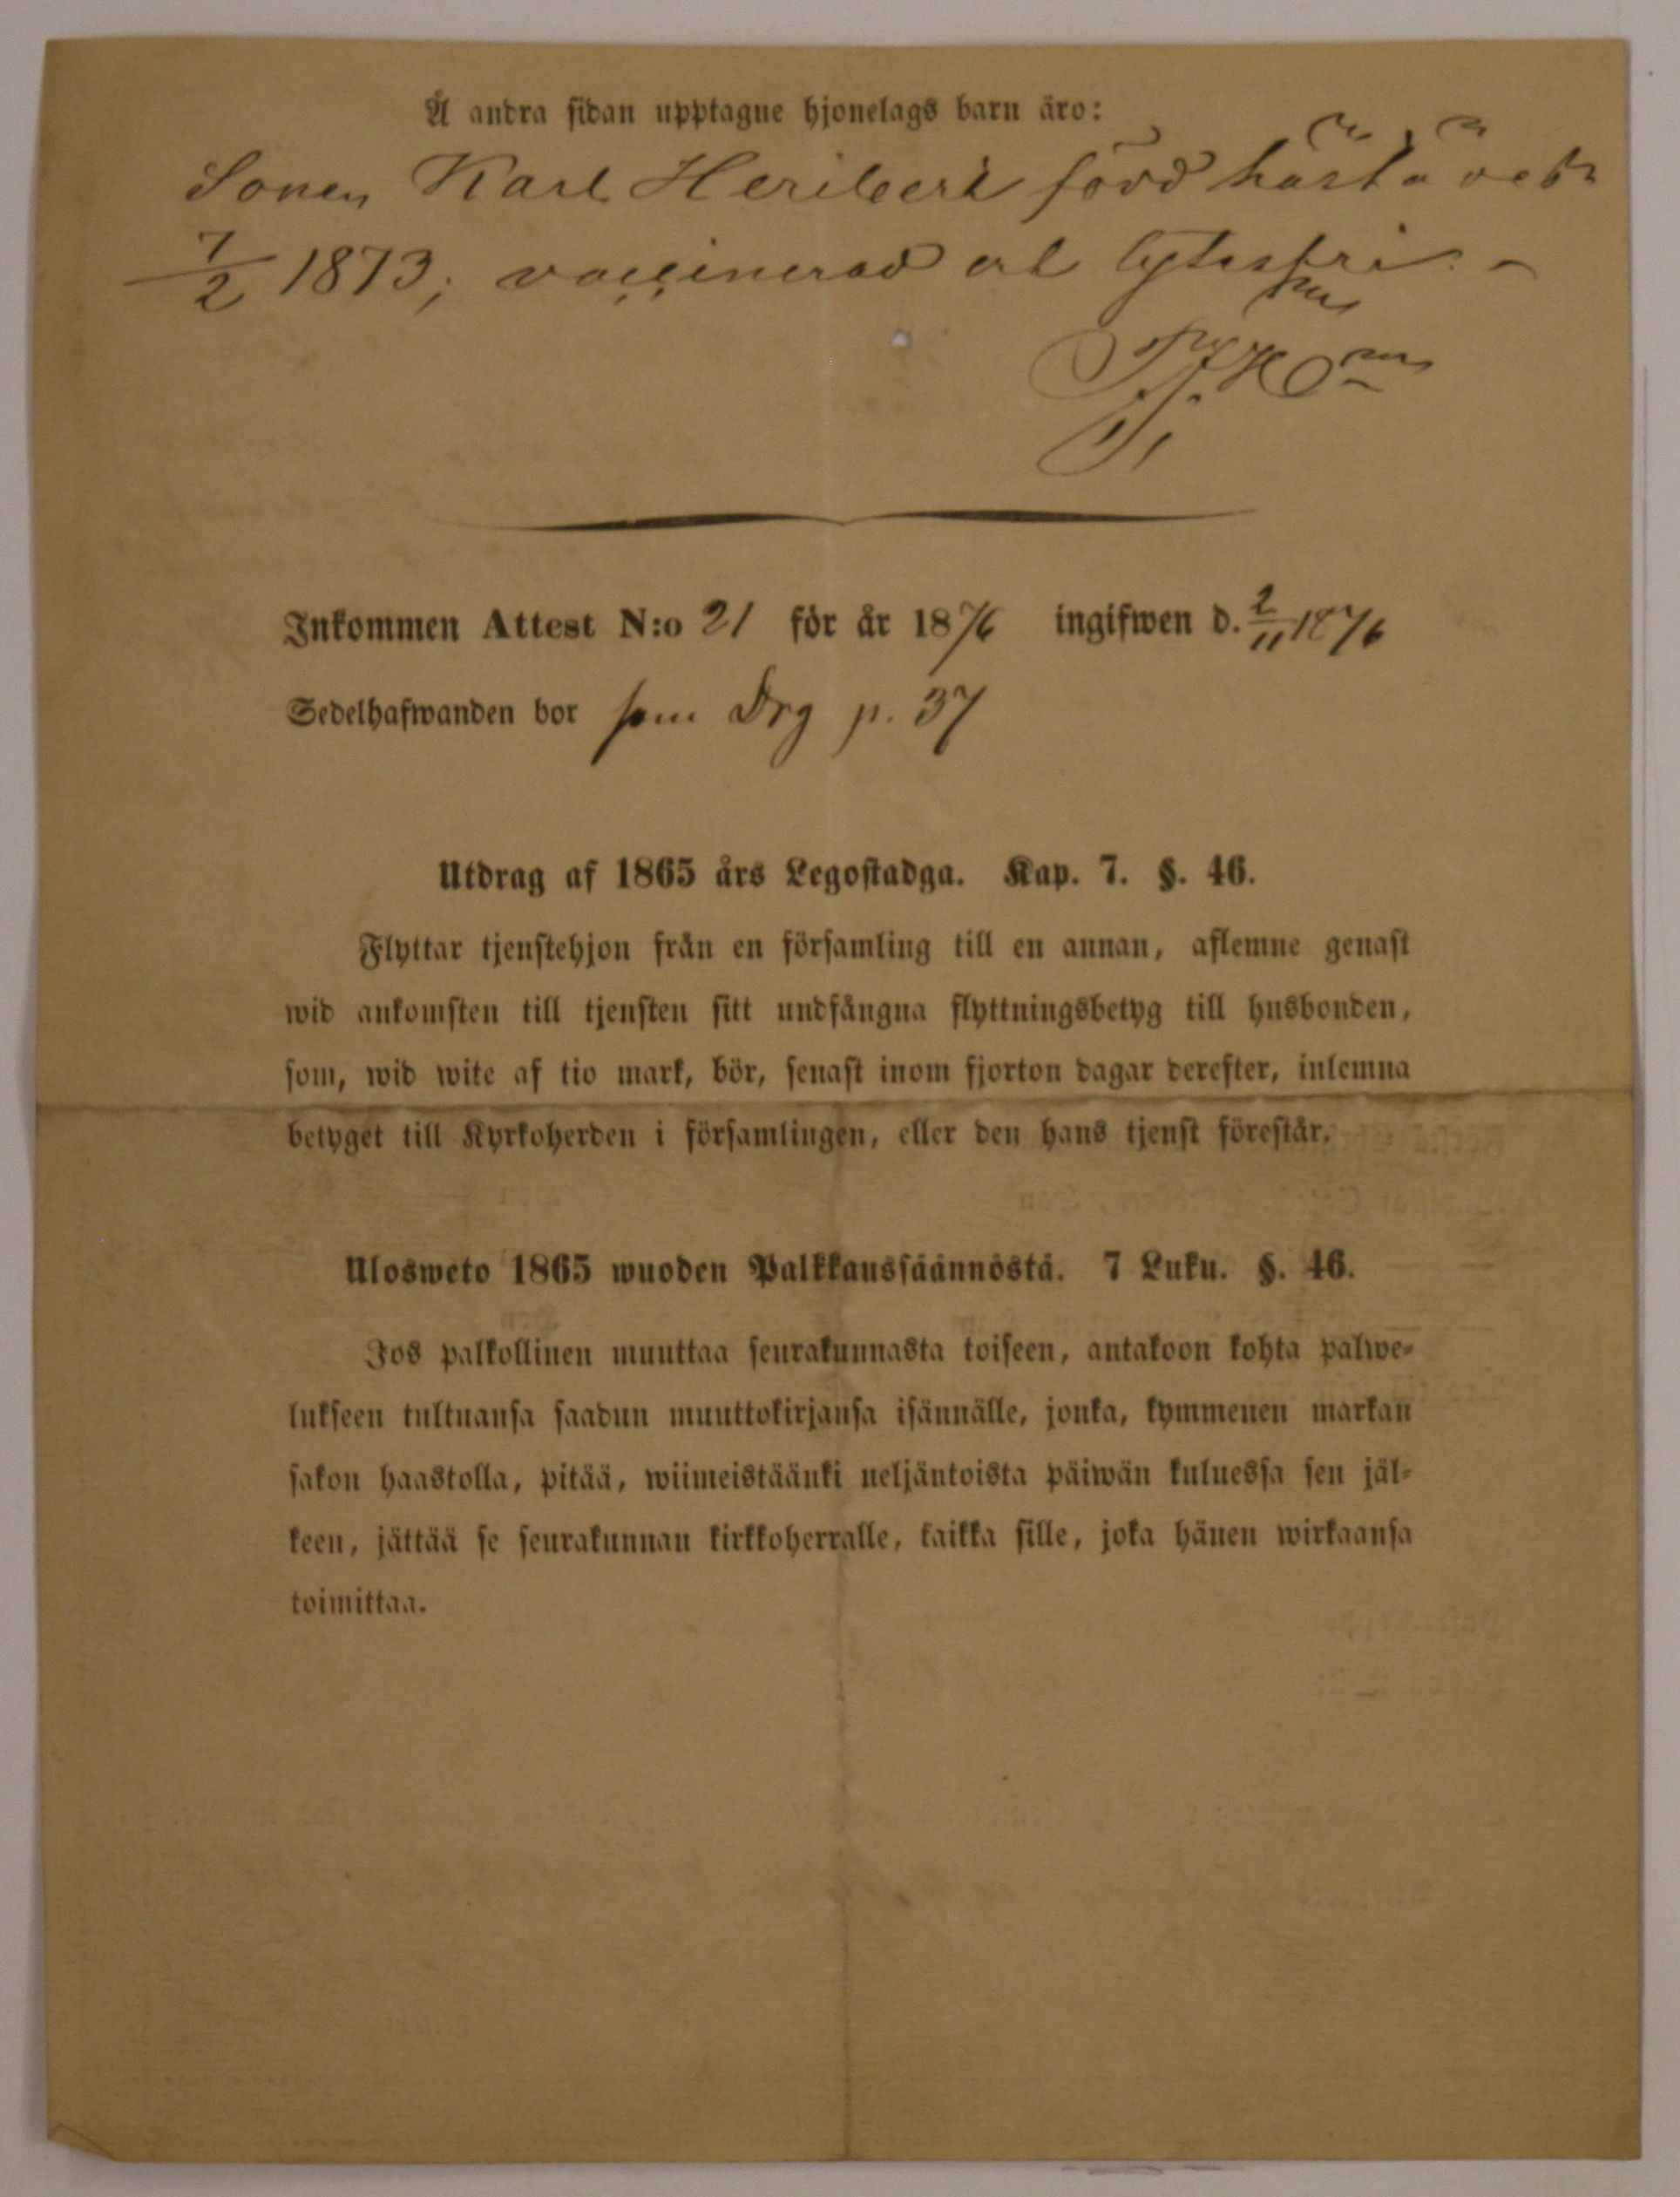 Å andra sidan upptagne hjonelags barn äro:
Sonen Karl Heribert född
7/2 1873; vaccinerad och lytesfri. –
Inkommen Attest N:o 21 för år 1876 ingifwen d. 2/11 1876
Sedelhafwanden bor som Drg p. 37
Utdrag af 1865 års Legostadga. Kap. 7. §. 46.
Flyttar tjenstehjon från en församling till en annan, aflemne genast
wid ankomsten till tjensten sitt undfångna flyttningsbetyg till husbonden,
som, wid wite af tio mark, bör, senast inom fjorton dagar derefter, inlemna
betyget till Kyrkoherden i församlingen, eller den hans tjenst förestår.
Ulosweto 1865 wuoden Palkkaussäännöstä. 7 Luku. §. 46.
Jos palkollinen muuttaa seurakunnasta toiseen, antakoon kohta palwe-
lukseen tultuansa saadun muuttokirjansa isännälle, jonka, kymmenen markan
sakon haastolla, pitää, wiimeistäänki neljäntoista päiwän kuluessa sen jäl-
keen, jättää se seurakunnan kirkkoherralle, taikka sille, joka hänen wirkaansa
toimittaa.